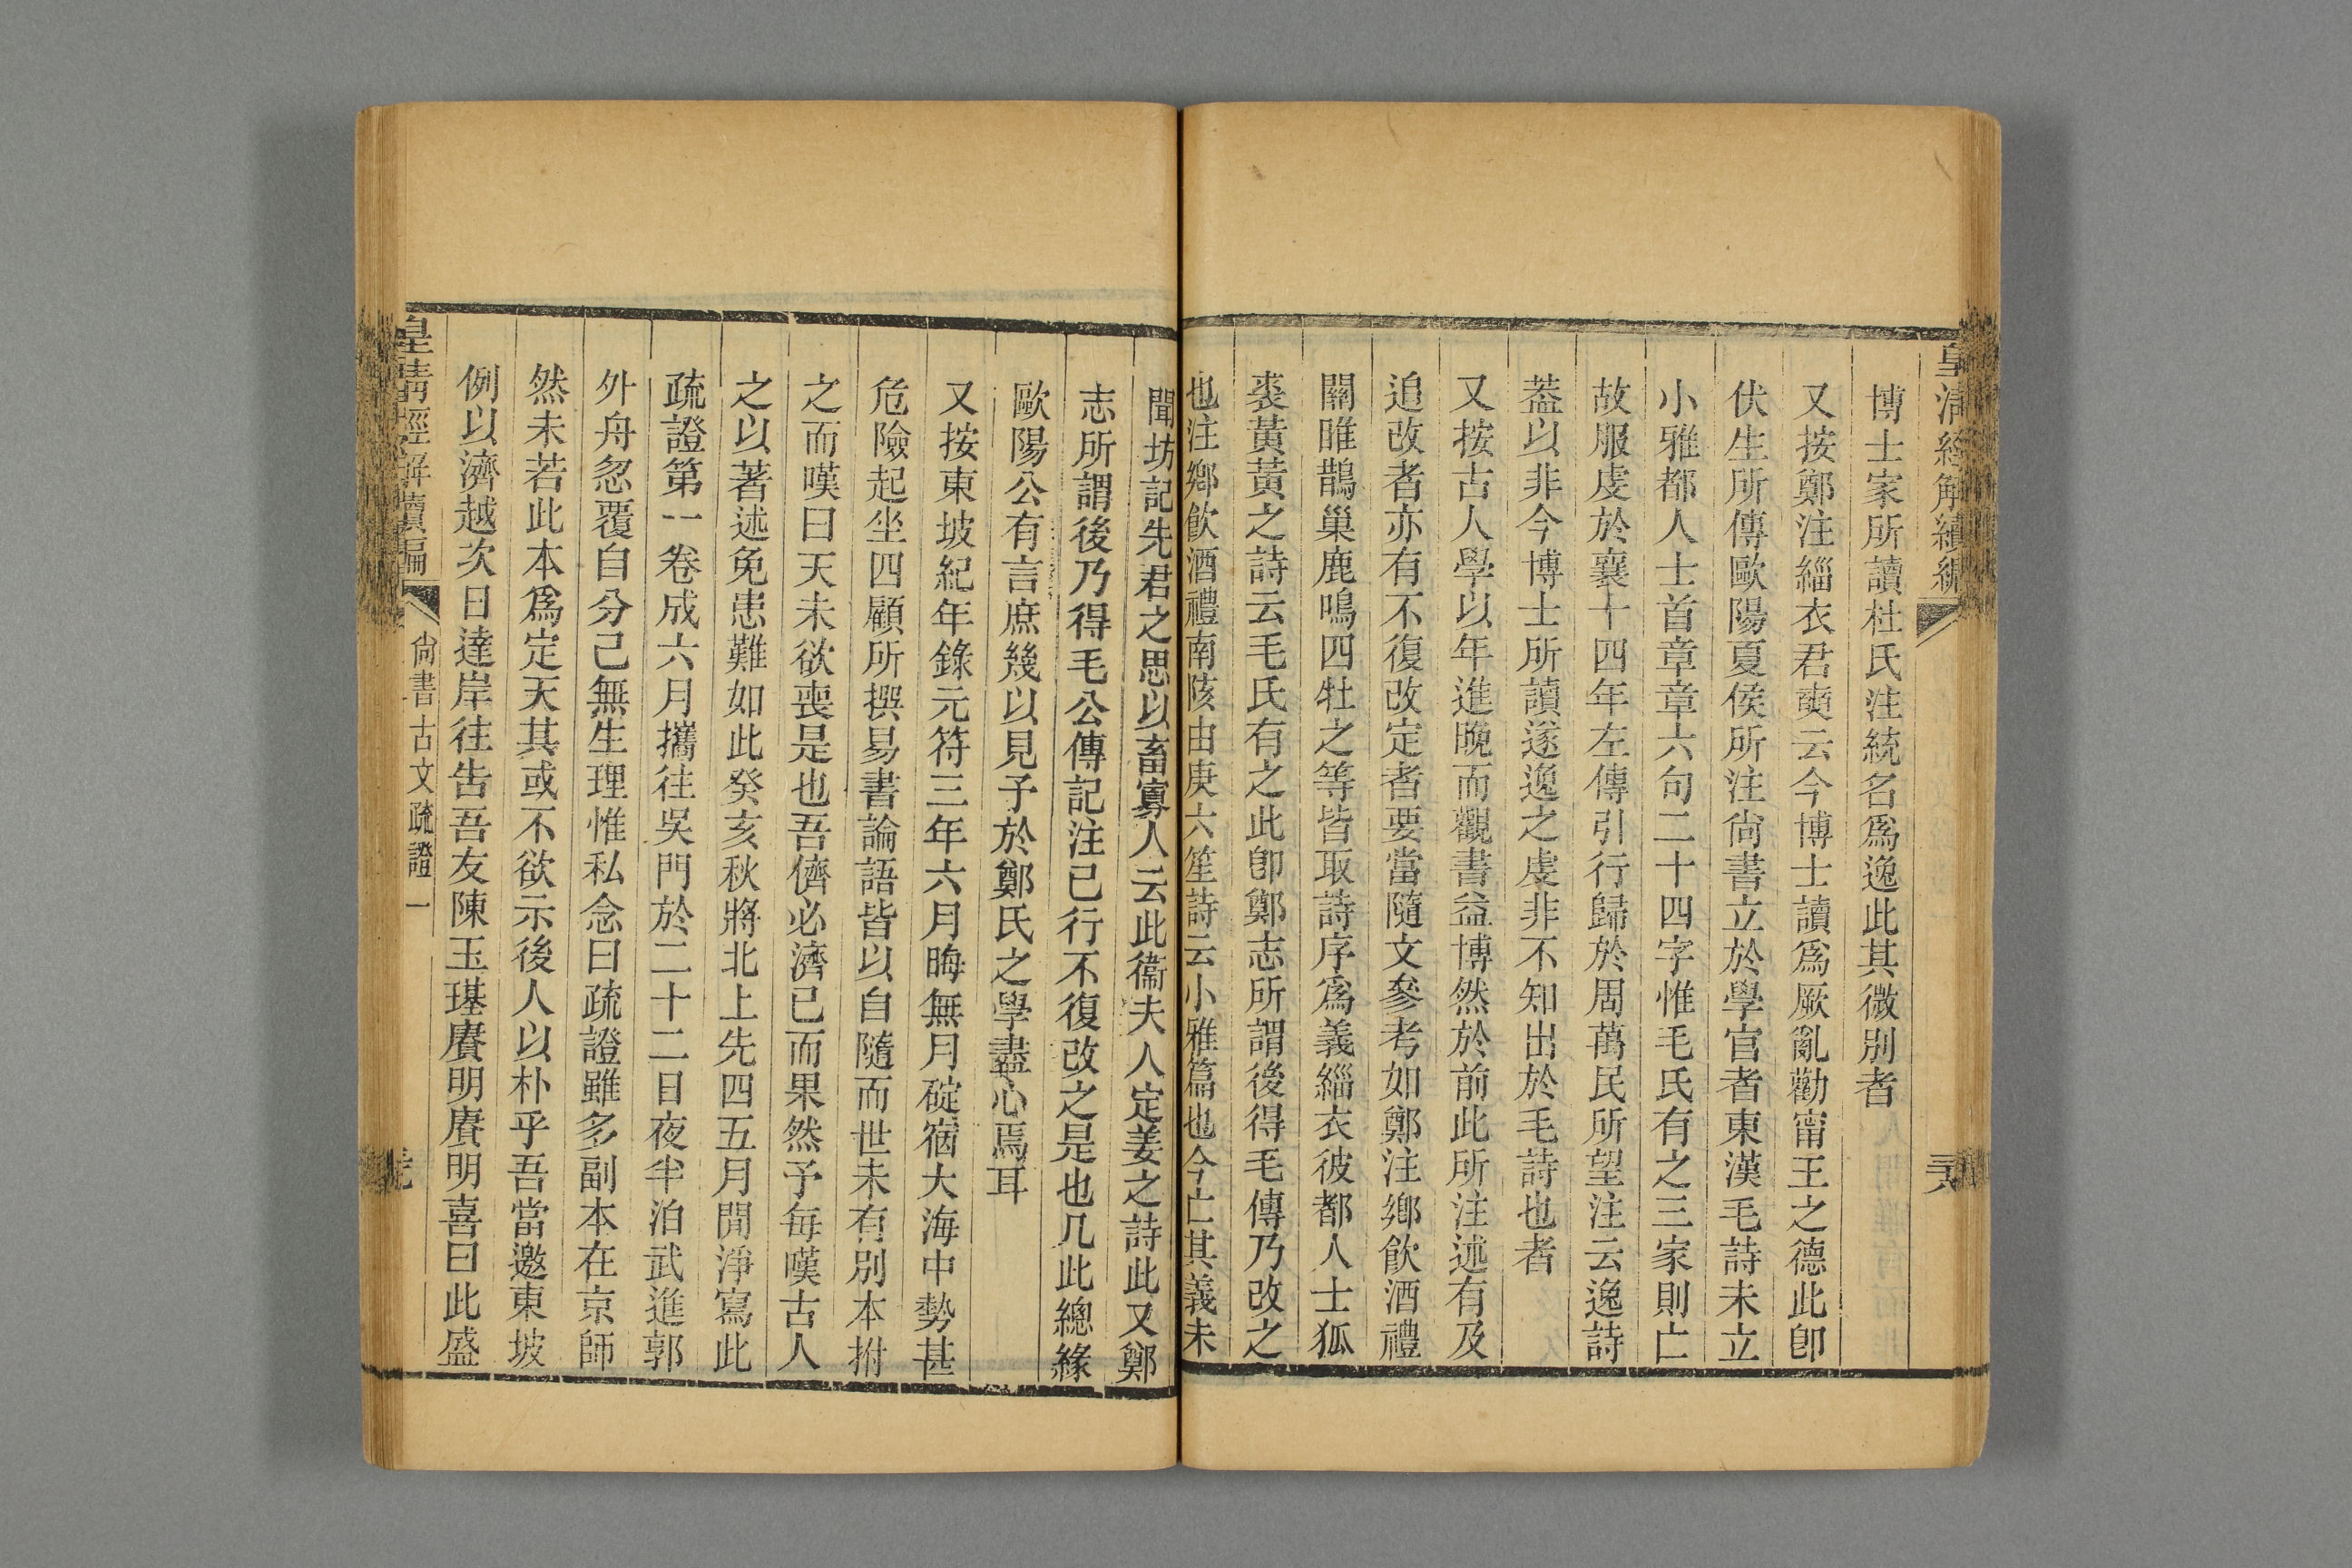 皇清經解續編
三六
博士家所讀杜氏注統名爲逸此其微別者
又按鄭注緇衣君奭云今博士讀爲厥亂勸甯王之德此卽
伏生所傳歐陽夏侯所注尙書立於學官者東漢毛詩未立
小雅都人士首章章六句二十四字惟毛氏有之三家則亡
故服虔於襄十四年左傳引行歸於周萬民所望注云逸詩
葢以非今博士所讀遂逸之虔非不知出於毛詩也者
又按古人學以年進晚而觀書益博然於前此所注述有及
追改者亦有不復改定者要當隨文參考如鄭注鄉飲酒禮
關雎鵲巢鹿鳴四牡之等皆取詩序爲義緇衣彼都人士狐
裘黃黃之詩云毛氏有之此卽鄭志所謂後得毛傳乃改之
也注鄉飲酒禮南陔由庚六笙詩云小雅篇也今亡其義未
聞坊記先君之思以畜寡人云此衞夫人定姜之詩此又鄭
志所謂後乃得毛公傳記注已行不復改之是也凡此總緣
歐陽公有言庶幾以見予於鄭氏之學盡心焉耳
又按東坡紀年錄元符三年六月晦無月碇宿大海中勢甚
危險起坐四顧所撰易書論語皆以自隨而世未有別本拊
之而嘆曰天未欲喪是也吾儕必濟已而果然予每嘆古人
之以著述免患難如此癸亥秋將北上先四五月閒淨寫此
疏證第一卷成六月攜往吳門於二十二日夜半泊武進郭
外舟忽覆自分已無生理惟私念曰疏證雖多副本在京師
然未若此本爲定天其或不欲示後人以朴乎吾當邀東坡
例以濟越次日達岸往告吾友陳玉璂賡明賡明喜曰此盛
皇清經解續編
尙書古文疏證一